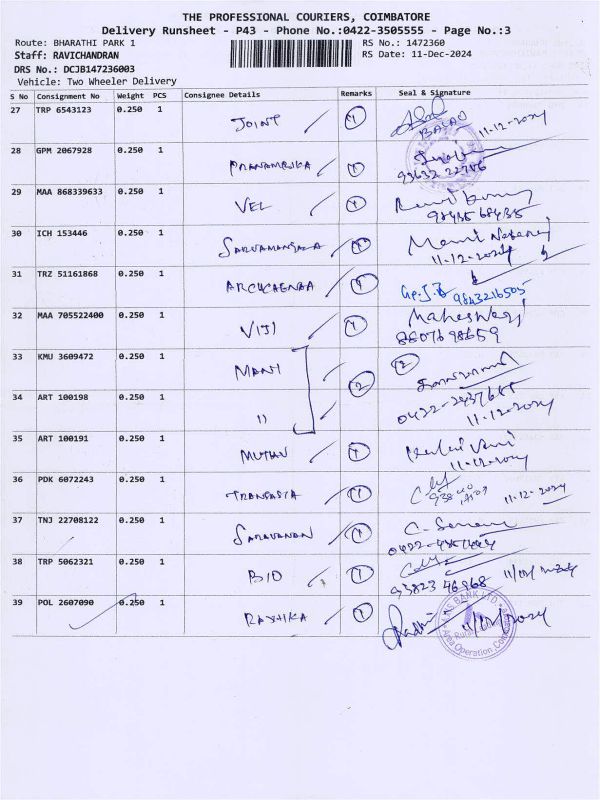 THE PROFESSIONAL COURIERS, COIMBATORE
Delivery Runsheet - P43 - Phone No.:0422-3505555 - Page No.:3
Route: BHARATHI PARK 1
RS No.: 1472360
Staff: RAVICHANDRAN
RS Date: 11-Dec-2024
DRS No.: DCJB147236003
Vehicle: Two Wheeler Delivery
S No Consignment No Weight PCS Consignee Details Remarks Seal & Signature
27 TRP 6543123 0.250 1 JOINT 1
BALAO 11-12-2024
28 GPM 2067928 0.250 1 PRANAMBIKA 1
29 MAA 868339633 0.250 1 VEL 1
30 ICH 153446 0.250 1 SARVAMANGALA 1
11-12-2024
31 TRZ 51161868 0.250 1 1
9843216505
32 MAA 705522400 0.250 1 VIJI 1 Maheswari
8807698659
33 KMU 3609472 0.250 1 MANI 2 2
34 ART 100198 0.250 1 11
0422-2437665
11-12-2024
35 ART 100191 0.250 1 MUTHU 1
11-12-2024
36 PDK 6072243 0.250 1 TRANSASIA 1
11-12-2024
37 TNJ 22708122 0.250 1 SARAVANAN 1
38 TRP 5062321 0.250 1 BIO 1
93823 46968 11/12/2024
39 POL 2607090 0.250 1 RASHIKA 1
11/12/2024
BANK LTD.
Area Operation